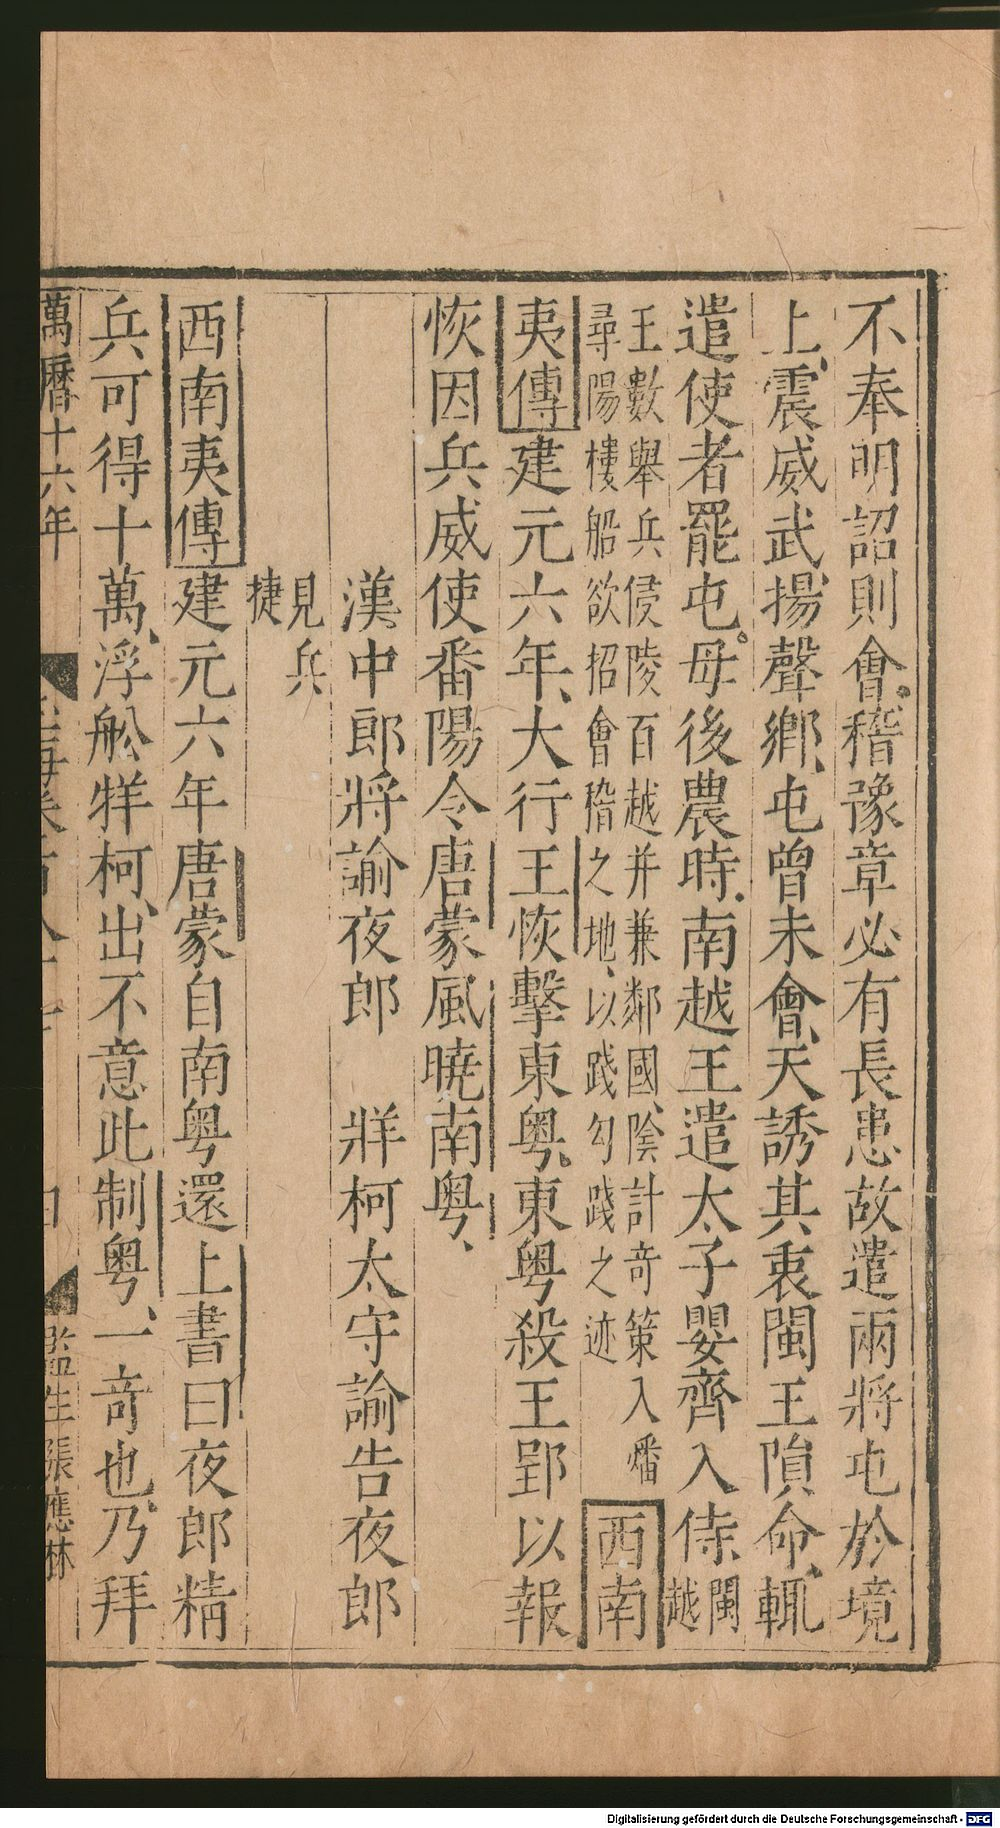 不奉明詔則會稽豫章必有長患故遣兩將屯於境
上震威武揚聲鄉屯曾未會天誘其衷閩王隕命輒
遣使者罷屯毋後農時南越王遣太子嬰齊入侍閩越
王數舉兵侵陵百越并兼鄰國陰計奇策入燔
尋陽樓船欲招會稽之地以踐勾踐之迹
西南
夷傳建元六年大行王恢擊東粵東粵殺王郢以報
恢因兵威使番陽令唐蒙風曉南粵
漢中郎將諭夜郎 牂柯太守諭告夜郎
見兵
捷
西南夷傳建元六年唐蒙自南粵還上書曰夜郎精
兵可得十萬浮舩牂柯出不意此制粵一竒也乃拜
萬曆十六年
監生張應林
Digitalisierung gefördert durch die Deutsche Forschungsgemeinschaft - DFG